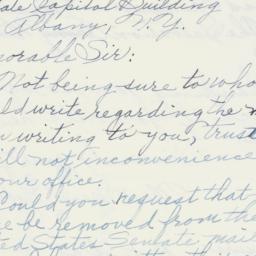 ate Capitol Building
Albany, N.Y.
norable Sir:
Not being sure to who
ld write regarding the
writing to you, trust
ill not inconvenience
our office.
Could you request that
e be removed from the
ted States Senate mail